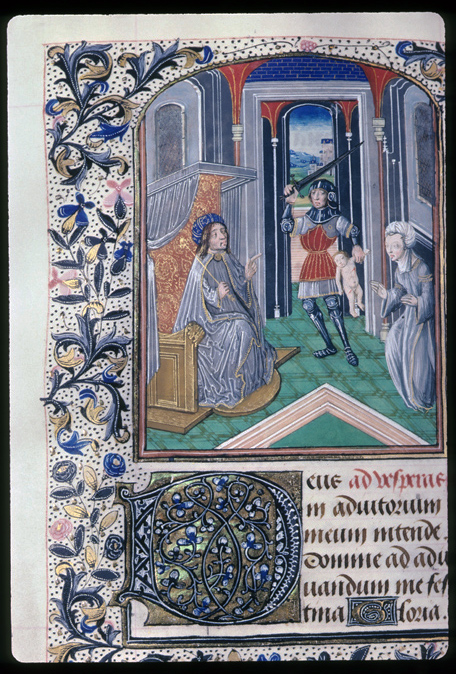 Deus ad vesperas
in adiutorium
meum intende.
Domine ad adiu
uandum me fes
tina Gloria.